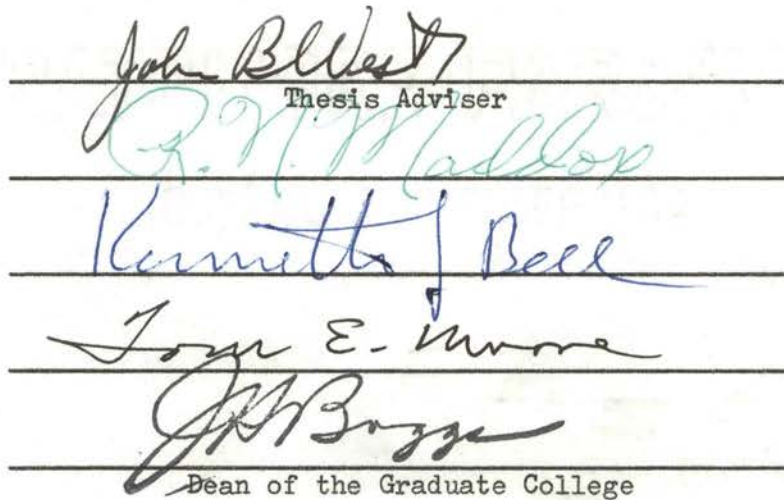 John B West
Thesis Adviser
R. N. Maddox
Kenneth J Bell
Tom E. Moore
J H Boggs
Dean of the Graduate College